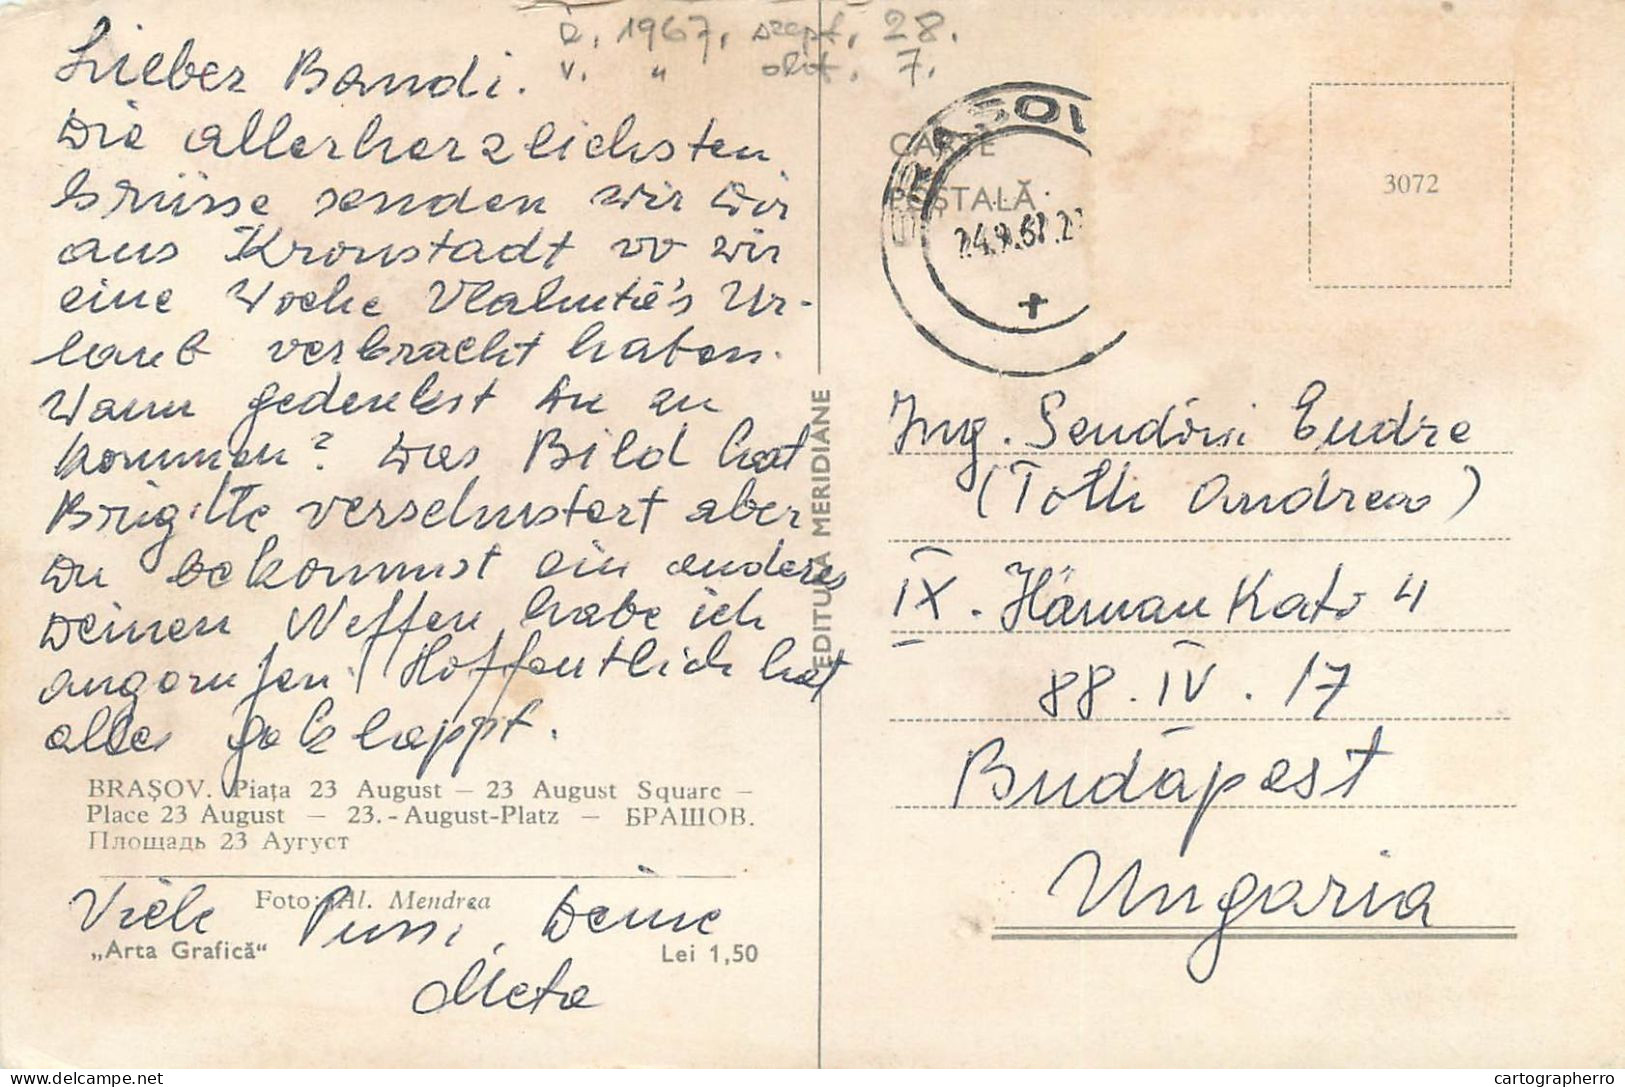 é. 1967, szept. 28.
v. " okt. 7.
Lieber Bandi.
Die allerherzlichsten
Grüsse senden wir Dir
aus Kronstadt wo wir
eine Woche Urlaub
verbracht haben.
Wann gedenkst Du zu
kommen? Das Bild hat
Brigitte verschustert aber
Du bekommst ein anderes
Deinen Neffen habe ich
angerufen. Hoffentlich hat
alles geklappt.
BRAȘOV. Piața 23 August — 23 August Square —
Place 23 August — 23.-August-Platz — БРАШОВ.
Площадь 23 Аугуст
Foto: Al. Mendrea
Viele Pussi, Deine
Meta
„Arta Grafică“ Lei 1,50
EDITURA MERIDIANE
CARTE
POȘTALĂ
BRASOV
3072
Ing. Endre
(Toth Andreas)
IX. Kato 4
88. IV. 17
Budapest
Ungaria
cartographerro